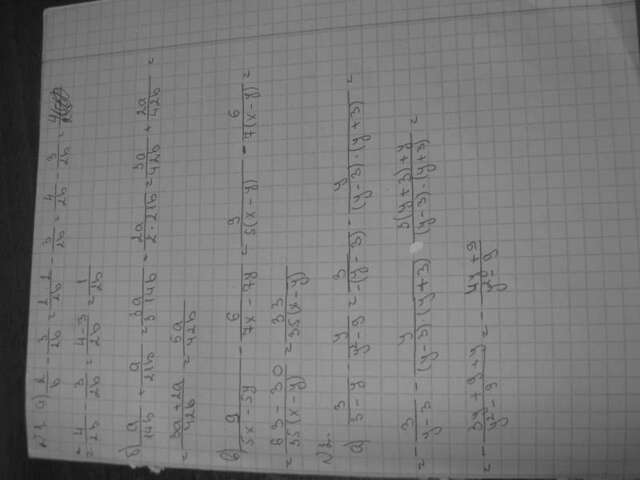 N1. а) 2/b - 3/2b = 2/2b - 3/2b = 4/2b - 3/2b =
= 4/2b - 3/2b = 4-3/2b = 1/2b
б) a/14b + a/21b = 3a/3·14b = 2a/2·21b = 3a/42b + 2a/42b =
= 3a+2a/42b = 5a/42b
в) 9/5x-5y - 6/7x-7y = 9/5(x-y) - 6/7(x-y) =
= 63-30/35(x-y) = 33/35(x-y)
N2.
а) 3/3-y - y/y²-9 = 3/-(y-3) - y/(y-3)·(y+3) =
= - 3/y-3 - y/(y-3)·(y+3) 3(y+3)+y/(y-3)·(y+3) =
= - 3y+9+y/y²-9 = - 4y+9/y²-9